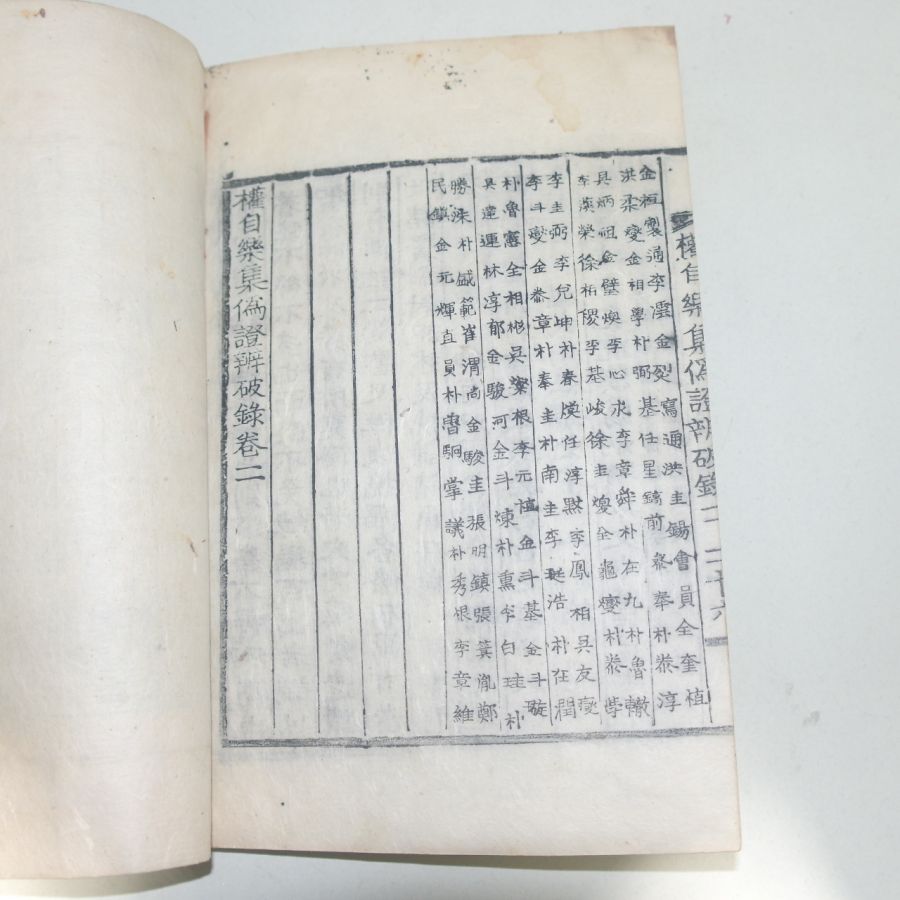 權自樂集僞證辨破錄二 二十六
金桓製通李澐金裂寫通洪圭錫會員全奎植
洪柔燮金相學朴弼基任星鎬前參奉朴泰淳
吳炳祖金璧煥李心求李章舜朴在九朴魯轍
李漢榮徐柘稷李基峻徐圭煥全龜燮朴泰學
李圭弼李兒坤朴春煥任淳黙李鳳相吳友燮
李斗燮金泰章朴奉圭朴南圭李珽浩朴在潤
朴魯憲全相彬吳根李元植金斗基金斗璇
吳達運林淳郁金駿河金斗煉朴熏白珪朴
勝洙朴盛範崔渭尚金駿圭張明鎮張箕胤鄭
民鎮金元煇直員朴魯駉掌議朴秀根李章維
權自樂集僞證辨破錄卷二